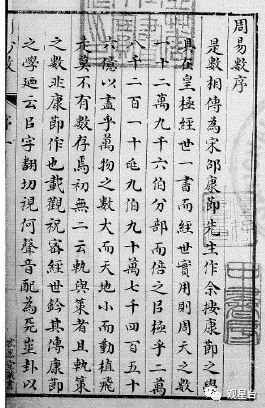 周易數序
是數相傳為宋邵康節先生作今按康節之學
具在皇極經世一書而經世實用則周天之數
一十二萬九千六伯分部而倍之㠯極乎二萬
八千二百一十 九伯九十萬七千四百五十
六億以盡乎萬物之數大而天地小而動植飛
走莫不有數存焉初無二云軌與策者且軌策
之數非康節作也載觀祝 經世鈐其傳康節
之學廼云㠯字翻切視何聲音配為 卦以
序 一
观星台